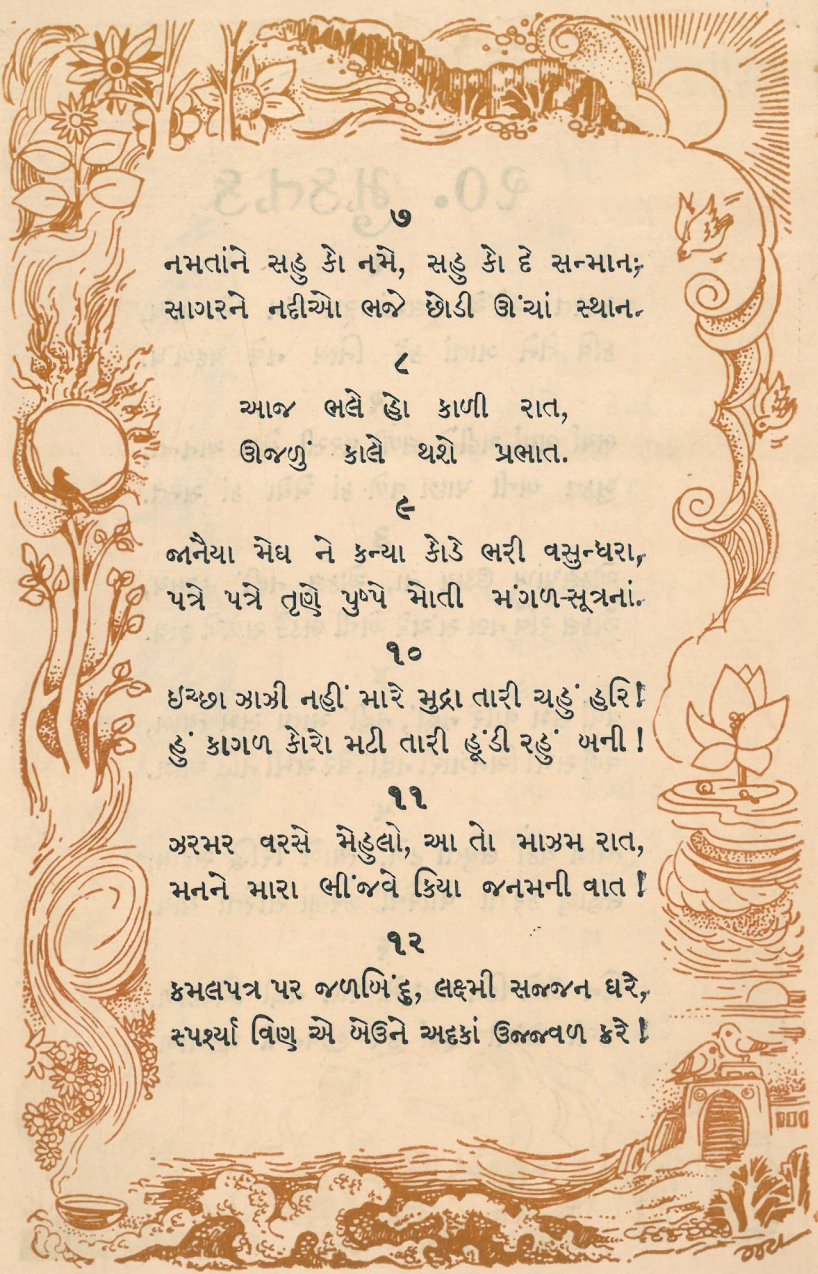 ૭
નમતાંને સહુ કો નમે, સહુ કો દે સન્માન;
સાગરને નદીઓ ભજે છોડી ઊંચાં સ્થાન.
૮
આજ ભલે હો કાળી રાત,
ઊજળું કાલે થશે પ્રભાત.
૯
જાનૈયા મેઘ ને કન્યા કોડે ભરી વસુન્ધરા,
પત્રે પત્રે તૃણે પુષ્પે મોતી મંગળ-સૂત્રનાં.
૧૦
ઇચ્છા ઝાઝી નહીં મારે મુદ્રા તારી ચહું હરિ!
હું કાગળ કોરો મટી તારી હૂંડી રહું બની!
૧૧
ઝરમર વરસે મેહુલો, આ તો માઝમ રાત,
મનને મારા ભીંજવે કિયા જનમની વાત!
૧૨
કમલપત્ર પર જળબિંદુ, લક્ષ્મી સજ્જન ઘરે,
સ્પર્શ્યા વિણ એ બેઉને અદકાં ઉજ્જવળ કરે!